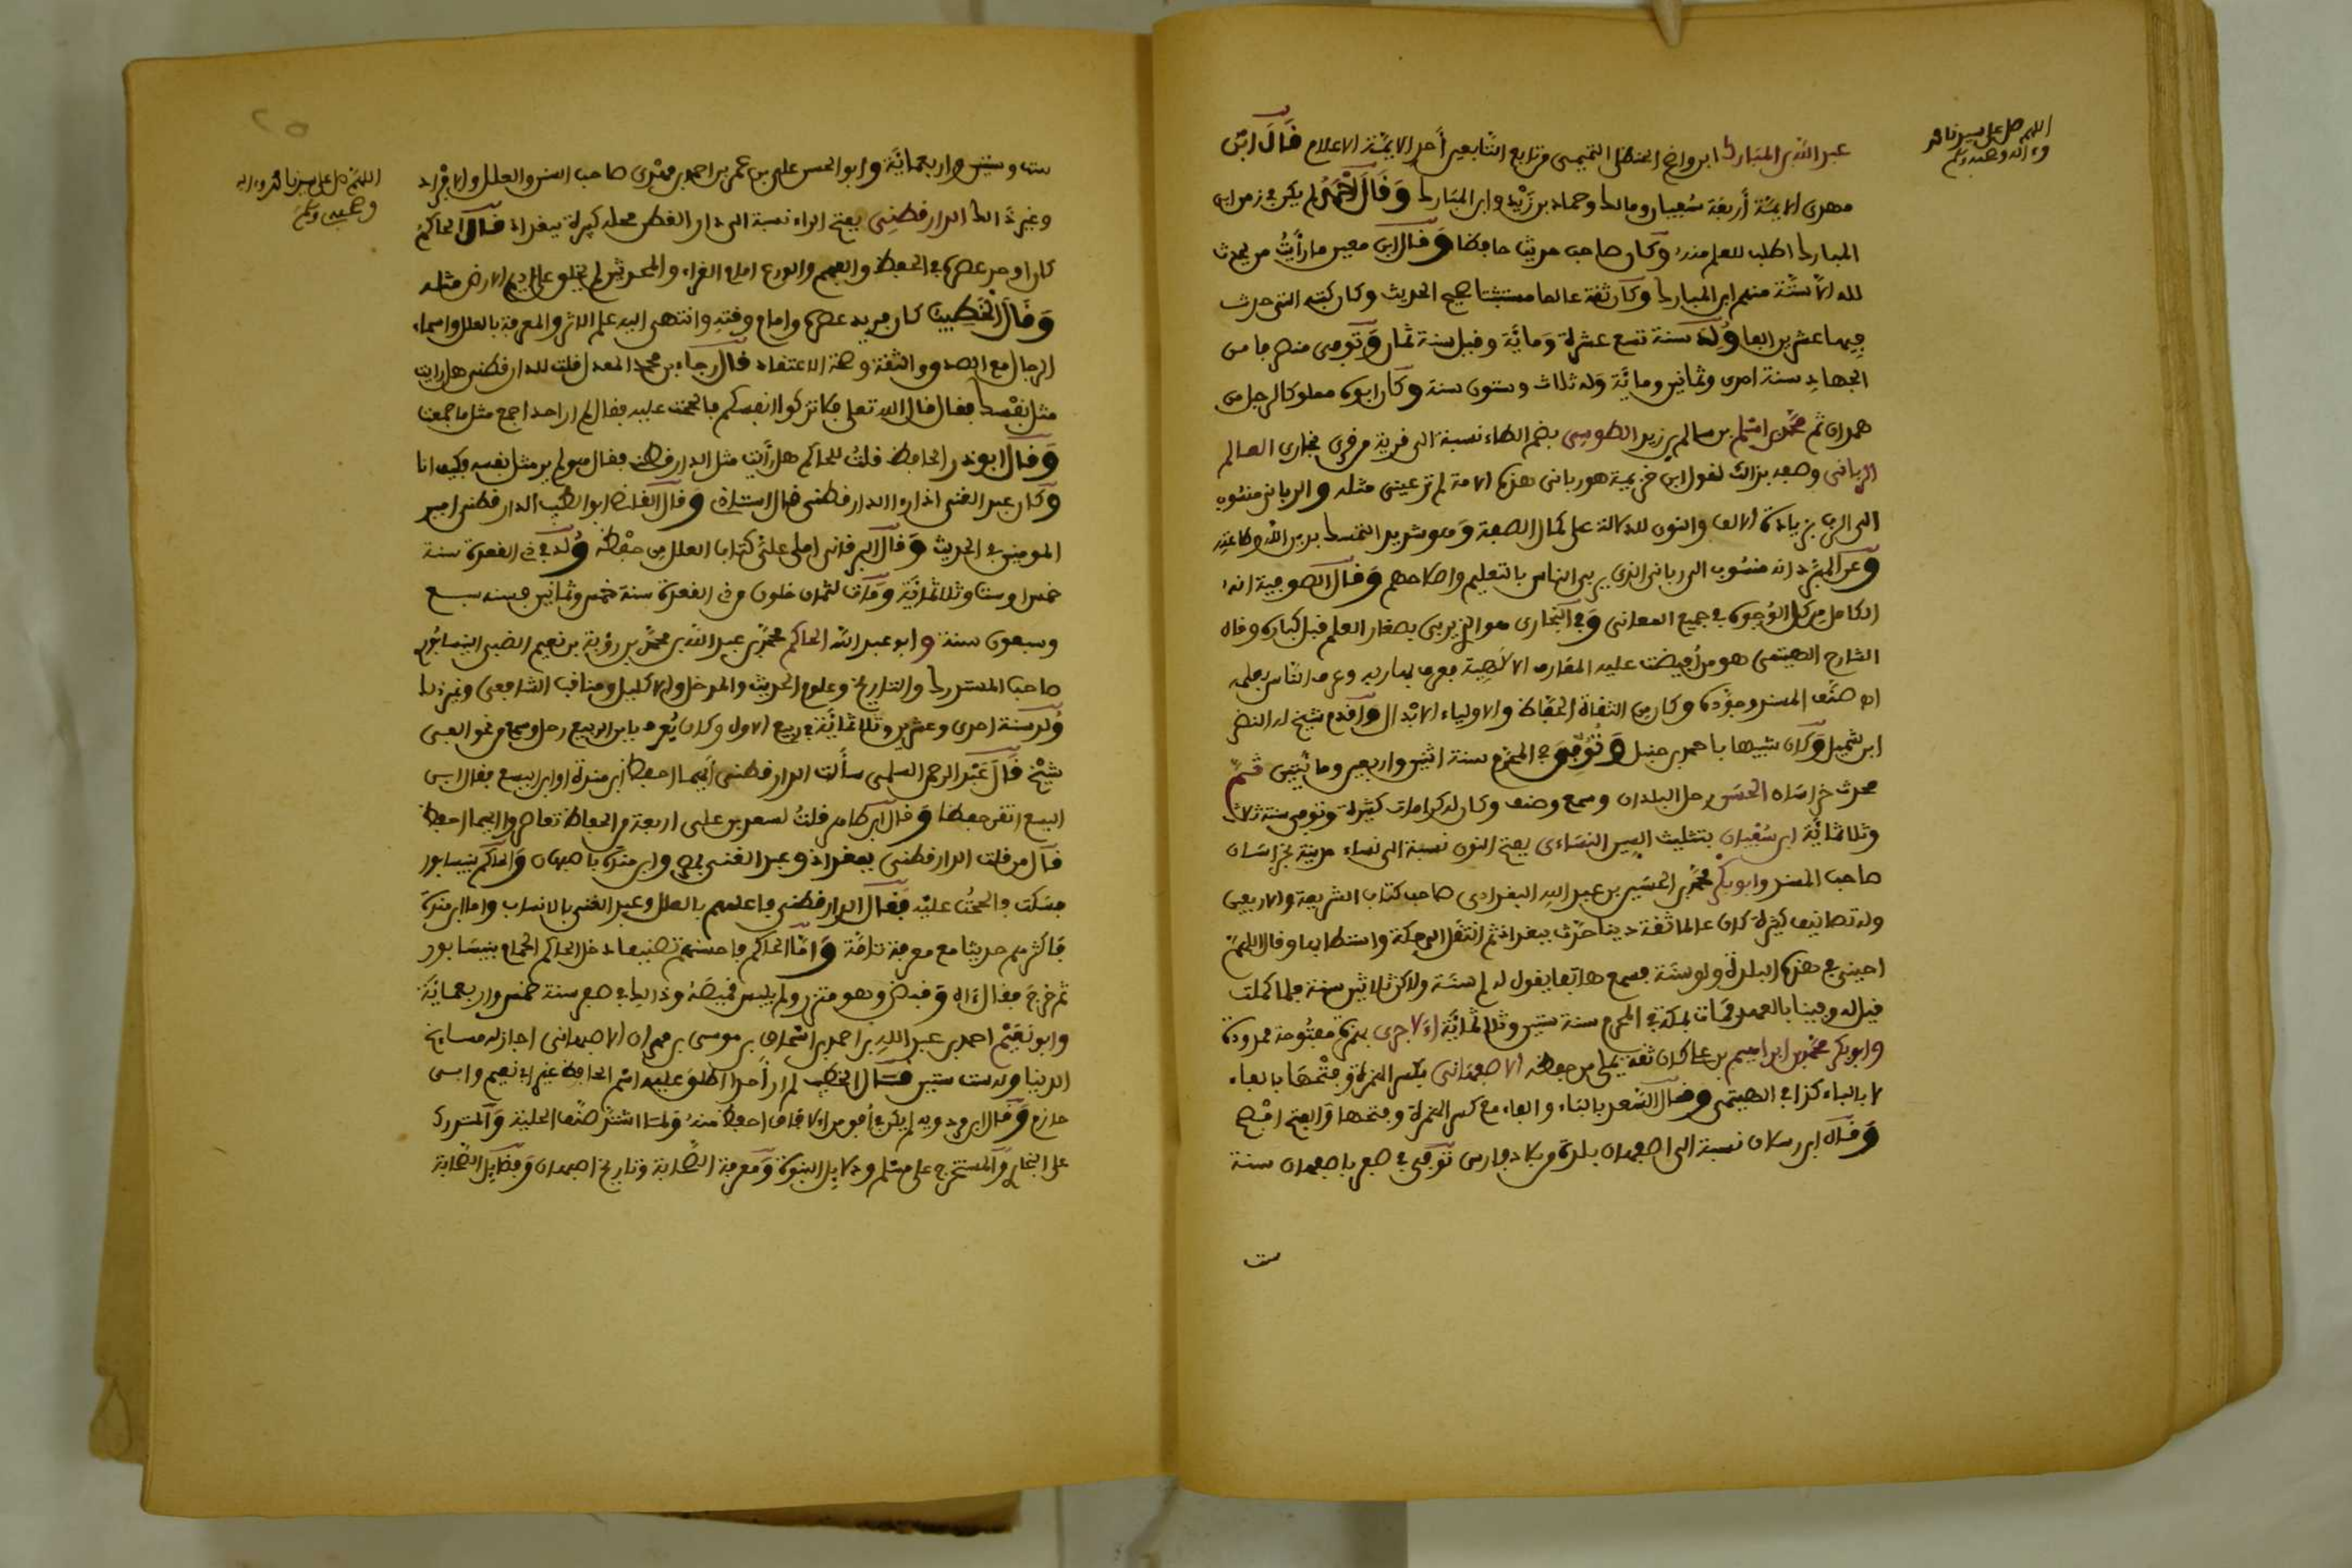 اللهم صل على سيدنا محمد
وءاله وصحبه وسلم
عبد الله بن المبارك ابن واضح الحنظلي التميمي من تابع التابعين أحد الايمة الاعلام قال ابن
مهدي الايمة أربعة سفيان ومالك وحماد بن زيد وابن المبارك وقال أحمد لم يكن في زمن ابن
المبارك اطلب للعلم منه وكان صاحب حديث حافظا وقال ابن معين ما رأيت من يحدث
لله الا ستة منهم ابن المبارك وكان ثقة عالما مستثبتا صحيح الحديث وكان كتبه التي حدث
فيها عشرين الفا ولد سنة تسع عشرة ومائة وقيل سنة ثمان وتوفي منصرفا من
الجهاد سنة احدى وثمانين ومائة وله ثلاث وستون سنة وكان ابوه مملوكا لرجل من
همدان ثم محمد بن اسلم بن سالم بن زيد الطوسي بضم الطاء نسبة الى قرية من قرى بخارى العالم
الرباني وصفه بذالك لقول ابن خزيمة هو رباني هذه الامة لم تر عيني مثله والرباني منسوب
الى الرب بزيادة الالف والنون للدلالة على كمال الصفة وهو شديد التمسك بدين الله وطاعته
وعن المبرد انه منسوب الى ربان الذي يربي الناس بالتعليم واصلاحهم وقال الصوفية انه
الكامل من كل الوجوه في جميع المعاني وفي البخاري هو الذي يربي بصغار العلم قبل كباره وقال
الشارح الهيتمي هو من أفيضت عليه المعارف الالهية فعرف بها ربه وعرف الناس بعلمه
اه صنف المسند وجوده وكان من الثقاة الحفاظ والاولياء الابدال واقدم شيخ له النضر
ابن شميل وكان شبيها باحمد بن حنبل وتوفي في المحرم سنة اثنين واربعين ومائتين ثم
محدث خراسان الحسن رحل البلدان وسمع وصنف وكان له كرامات كثيرة وتوفي سنة ثلاث
وثلاثمائة ابن سفيان بتثليث السين النساءي بفتح النون نسبة الى نساء مدينة بخراسان
صاحب المسند وابو بكر محمد بن الحسين بن عبد الله البغدادي صاحب كتاب الشريعة والاربعين
وله تصانيف كثيرة كان عالما ثقة دينا حدث ببغداد ثم انتقل الى مكة واستطابها وقال اللهم
احيني في هذه البلدة ولو سنة فسمع هاتفا يقول له لم سنة ولاكن ثلاثين سنة فلما كملت
قيل له وفينا بالعهد فمات بمكة في المحرم سنة ستين وثلاثمائة الاجري بهمزة مفتوحة ممدودة
وابو بكر محمد بن ابراهيم بن علي كان ثقة يملي من حفظه الاصفهاني بكسر الهمزة وفتحها بالفاء
لا بالباء كذا في الهيتمي وقال السعد بالباء والفاء مع كسر الهمزة وفتحها والفتح افصح
وقال ابن رسلان نسبة الى اصفهان بلدة من بلاد فارس توفي في صفر باصفهان سنة
ست
اللهم صل على سيدنا محمد وءاله
وصحبه وسلم
ست وستين واربعمائة وابو الحسن علي بن عمر بن احمد بن مهدي صاحب السنن والعلل والافراد
وغير ذالك الدارقطني بفتح الراء نسبة الى دار القطن محلة كبيرة ببغداد قال الحاكم
كان اوحد عصره في الحفظ والفهم والورع امام القراء والمحدثين لم يخلق على اديم الارض مثله
وقال الخطيب كان فريد عصره وامام وقته وانتهى اليه علم الاثر والمعرفة بالعلل واسماء
الرجال مع الصدق والثقة وصحة الاعتقاد قال رجاء بن محمد المعدل قلت للدارقطني هل رايت
مثل نفسك فقال قال الله تعلى فلا تزكوا انفسكم فالححت عليه فقال لم ار احدا جمع مثل ما جمعت
وقال ابو ذر الحافظ قلت للحاكم هل رأيت مثل الدارقطني فقال هو لم ير مثل نفسه فكيف انا
وكان عبد الغني اذا ذكر الدارقطني قال استاذي وقال القاضي ابو الطيب الدارقطني امير
المومنين في الحديث وقال البرقاني املى علي كتاب العلل من حفظه ولد في ذي القعدة سنة
خمس او ست وثلاثمائة ومات لثمان خلون من ذي القعدة سنة خمس وثمانين فسنه تسع
وسبعون سنة وابو عبد الله الحاكم محمد بن عبد الله بن محمد بن رؤية بن نعيم الضبي النيسابوري
صاحب المستدرك والتاريخ وعلوم الحديث والمدخل والاكليل ومناقب الشافعي وغير ذلك
ولد سنة احدى وعشرين وثلاثمائة في ربيع الاول وكان يعرف بابن البيع رحل وسمع من نحو الفي
شيخ قال عبد الرحمن السلمي سألت الدارقطني أيهما احفظ ابن مندة او ابن البيع فقال ابن
البيع اتقن حفظا وقال ابن طاهر قلت لسعد بن علي اربعة من الحفاظ تعاصروا ايهما احفظ
قال من قلت الدارقطني ببغداد وعبد الغني بمصر وابن منده باصبهان والحاكم بنيسابور
فسكت فالححت عليه فقال الدارقطني فاعلمهم بالعلل وعبد الغني بالانساب واما ابن منده
فاكثرهم حديثا مع معرفة تامة واما الحاكم فاحسنهم تصنيفا دخل الحاكم الحمام بنيسابور
ثم خرج فقال ءاه وقبض وهو متزر ولم يلبس قميصه وذالك في صفر سنة خمس واربعمائة
وابو نعيم احمد بن عبد الله بن احمد بن اسحاق بن موسى بن مهران الاصبهاني اجاز له مشايخ
الدنيا وله ست سنين قال الخطيب لم ار أحدا اطلق عليه اسم الحافظ غير ابي نعيم وابي
حازم وقال ابن مردويه لم يكن في أفق من الافاق احفظ منه ولما اشتهر صنف الحلية والمستدرك
على البخاري والمستخرج على مسلم ودلايل النبوة ومعرفة الصحابة وتاريخ اصبهان وفضايل الصحابة